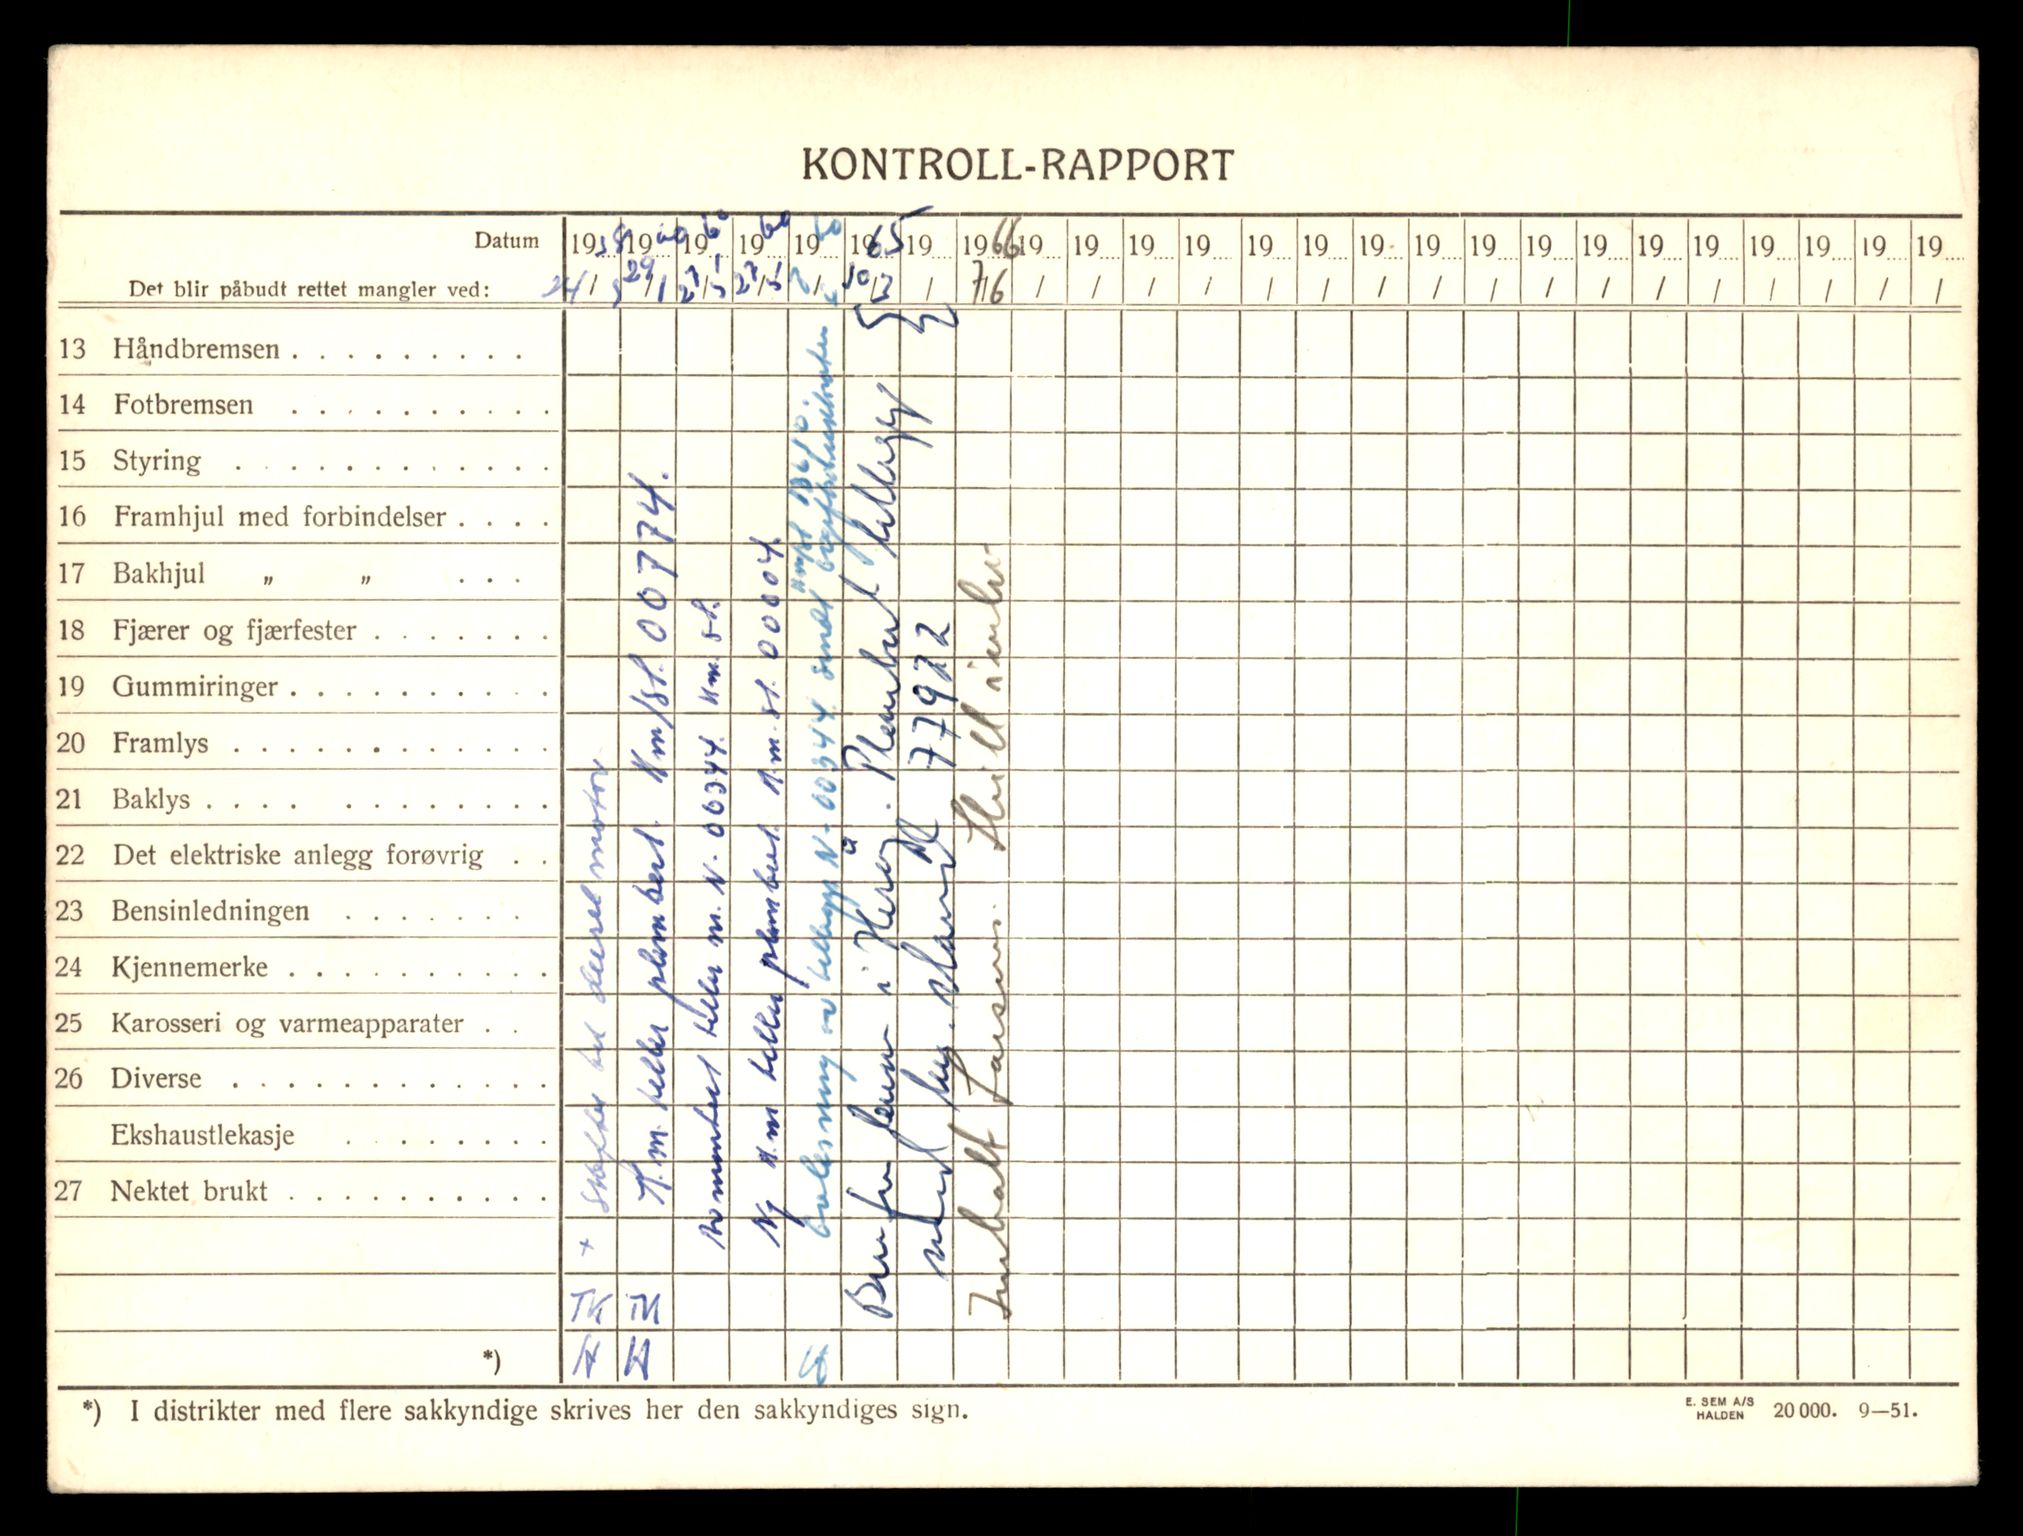 KONTROLL-RAPPORT
Datum 1958 1960 1960 1960 1960 1965 19 1966 19 19 19 19 19 19 19 19 19 19 19 19 19 19 19 19 19
Det blir påbudt rettet mangler ved: 29/1 27/5 27/5 10/3 7/6 / / / / / / / / / / / / / / / / /
13 Håndbremsen . . . . . . . . .
14 Fotbremsen . . . . . . . . . .
15 Styring . . . . . . . . . . . .
16 Framhjul med forbindelser . . . .
17 Bakhjul „ „ . . .
18 Fjærer og fjærfester . . . . . . .
19 Gummiringer . . . . . . . . . .
20 Framlys . . . . . . . . . . . .
21 Baklys . . . . . . . . . . . .
22 Det elektriske anlegg forøvrig . .
23 Bensinledningen . . . . . . .
24 Kjennemerke . . . . . . . . . .
25 Karosseri og varmeapparater . .
26 Diverse . . . . . . . . . . . .
Ekshaustlekasje . . . . . . . .
27 Nektet brukt . . . . . . . . . .
*)
+ skifter til diesel motor
K.m. teller plombert. Km/st. 00774.
Demontert teller m. N. 00344. Km. st.
Ny K.m teller plombert. K.m. st. 00004.
av tellegg N-00344 sendt
Ber fra lensm i Herøy. Plombert tellegg
med km. stand 77922
Innkalt Larsnes. Stilt
TK TK
*) I distrikter med flere sakkyndige skrives her den sakkyndiges sign.
E. SEM A/S
HALDEN 20 000. 9—51.